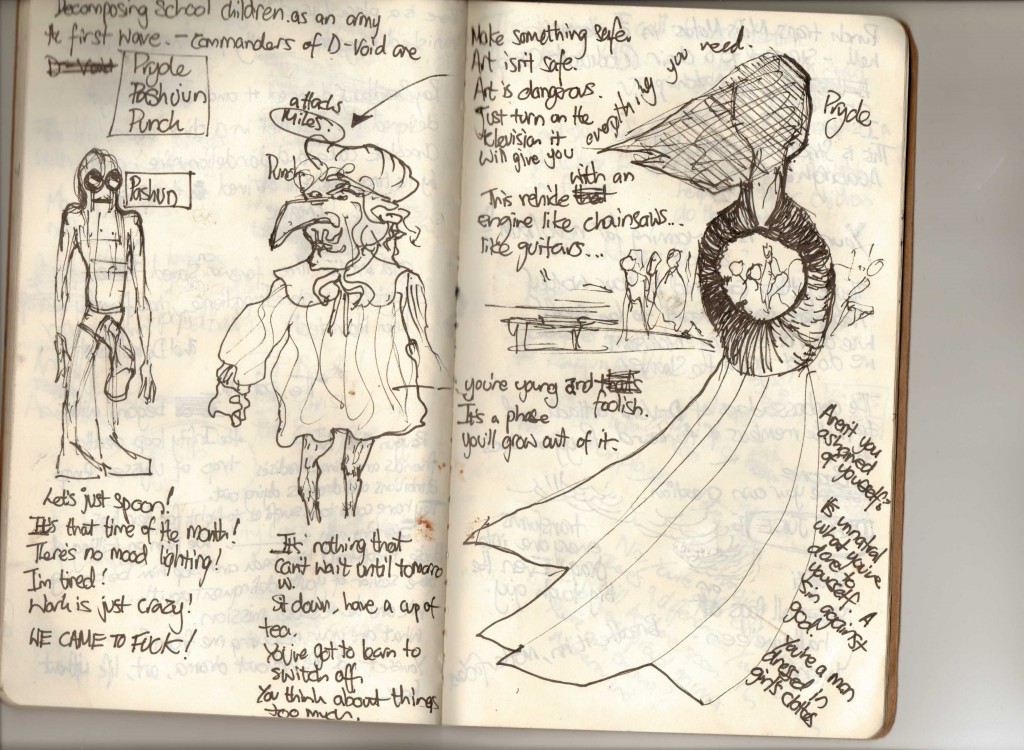 Decomposing School children as an army
A first wave. - Commanders of D-Void are
D-Void
Pryde
Poshoun
Punch
attacks
Miles.
Punch
Pashun
Let's just spoon!
It's that time of the month!
There's no mood lighting!
I'm tired!
Work is just crazy!
WE CAME TO FUCK!
It's nothing that
can't wait until tomorro
w.
Sit down, have a cup of
tea.
You've got to learn to
switch off,
You think about things
too much.
Make something safe.
Art isn't safe.
Art is dangerous.
Just turn on the
television it
will give you everything you need.
Pryde
with an
This vehicle that
engine like chainsaws...
like guitars...
you're young and that's
foolish.
It's a phase
you'll grow out of it.
Aren't you
ashamed
of yourself?
It's unnatural
what you've
done to
yourself. A
sin against
god.
You're a man
dressed in
girl's clothes